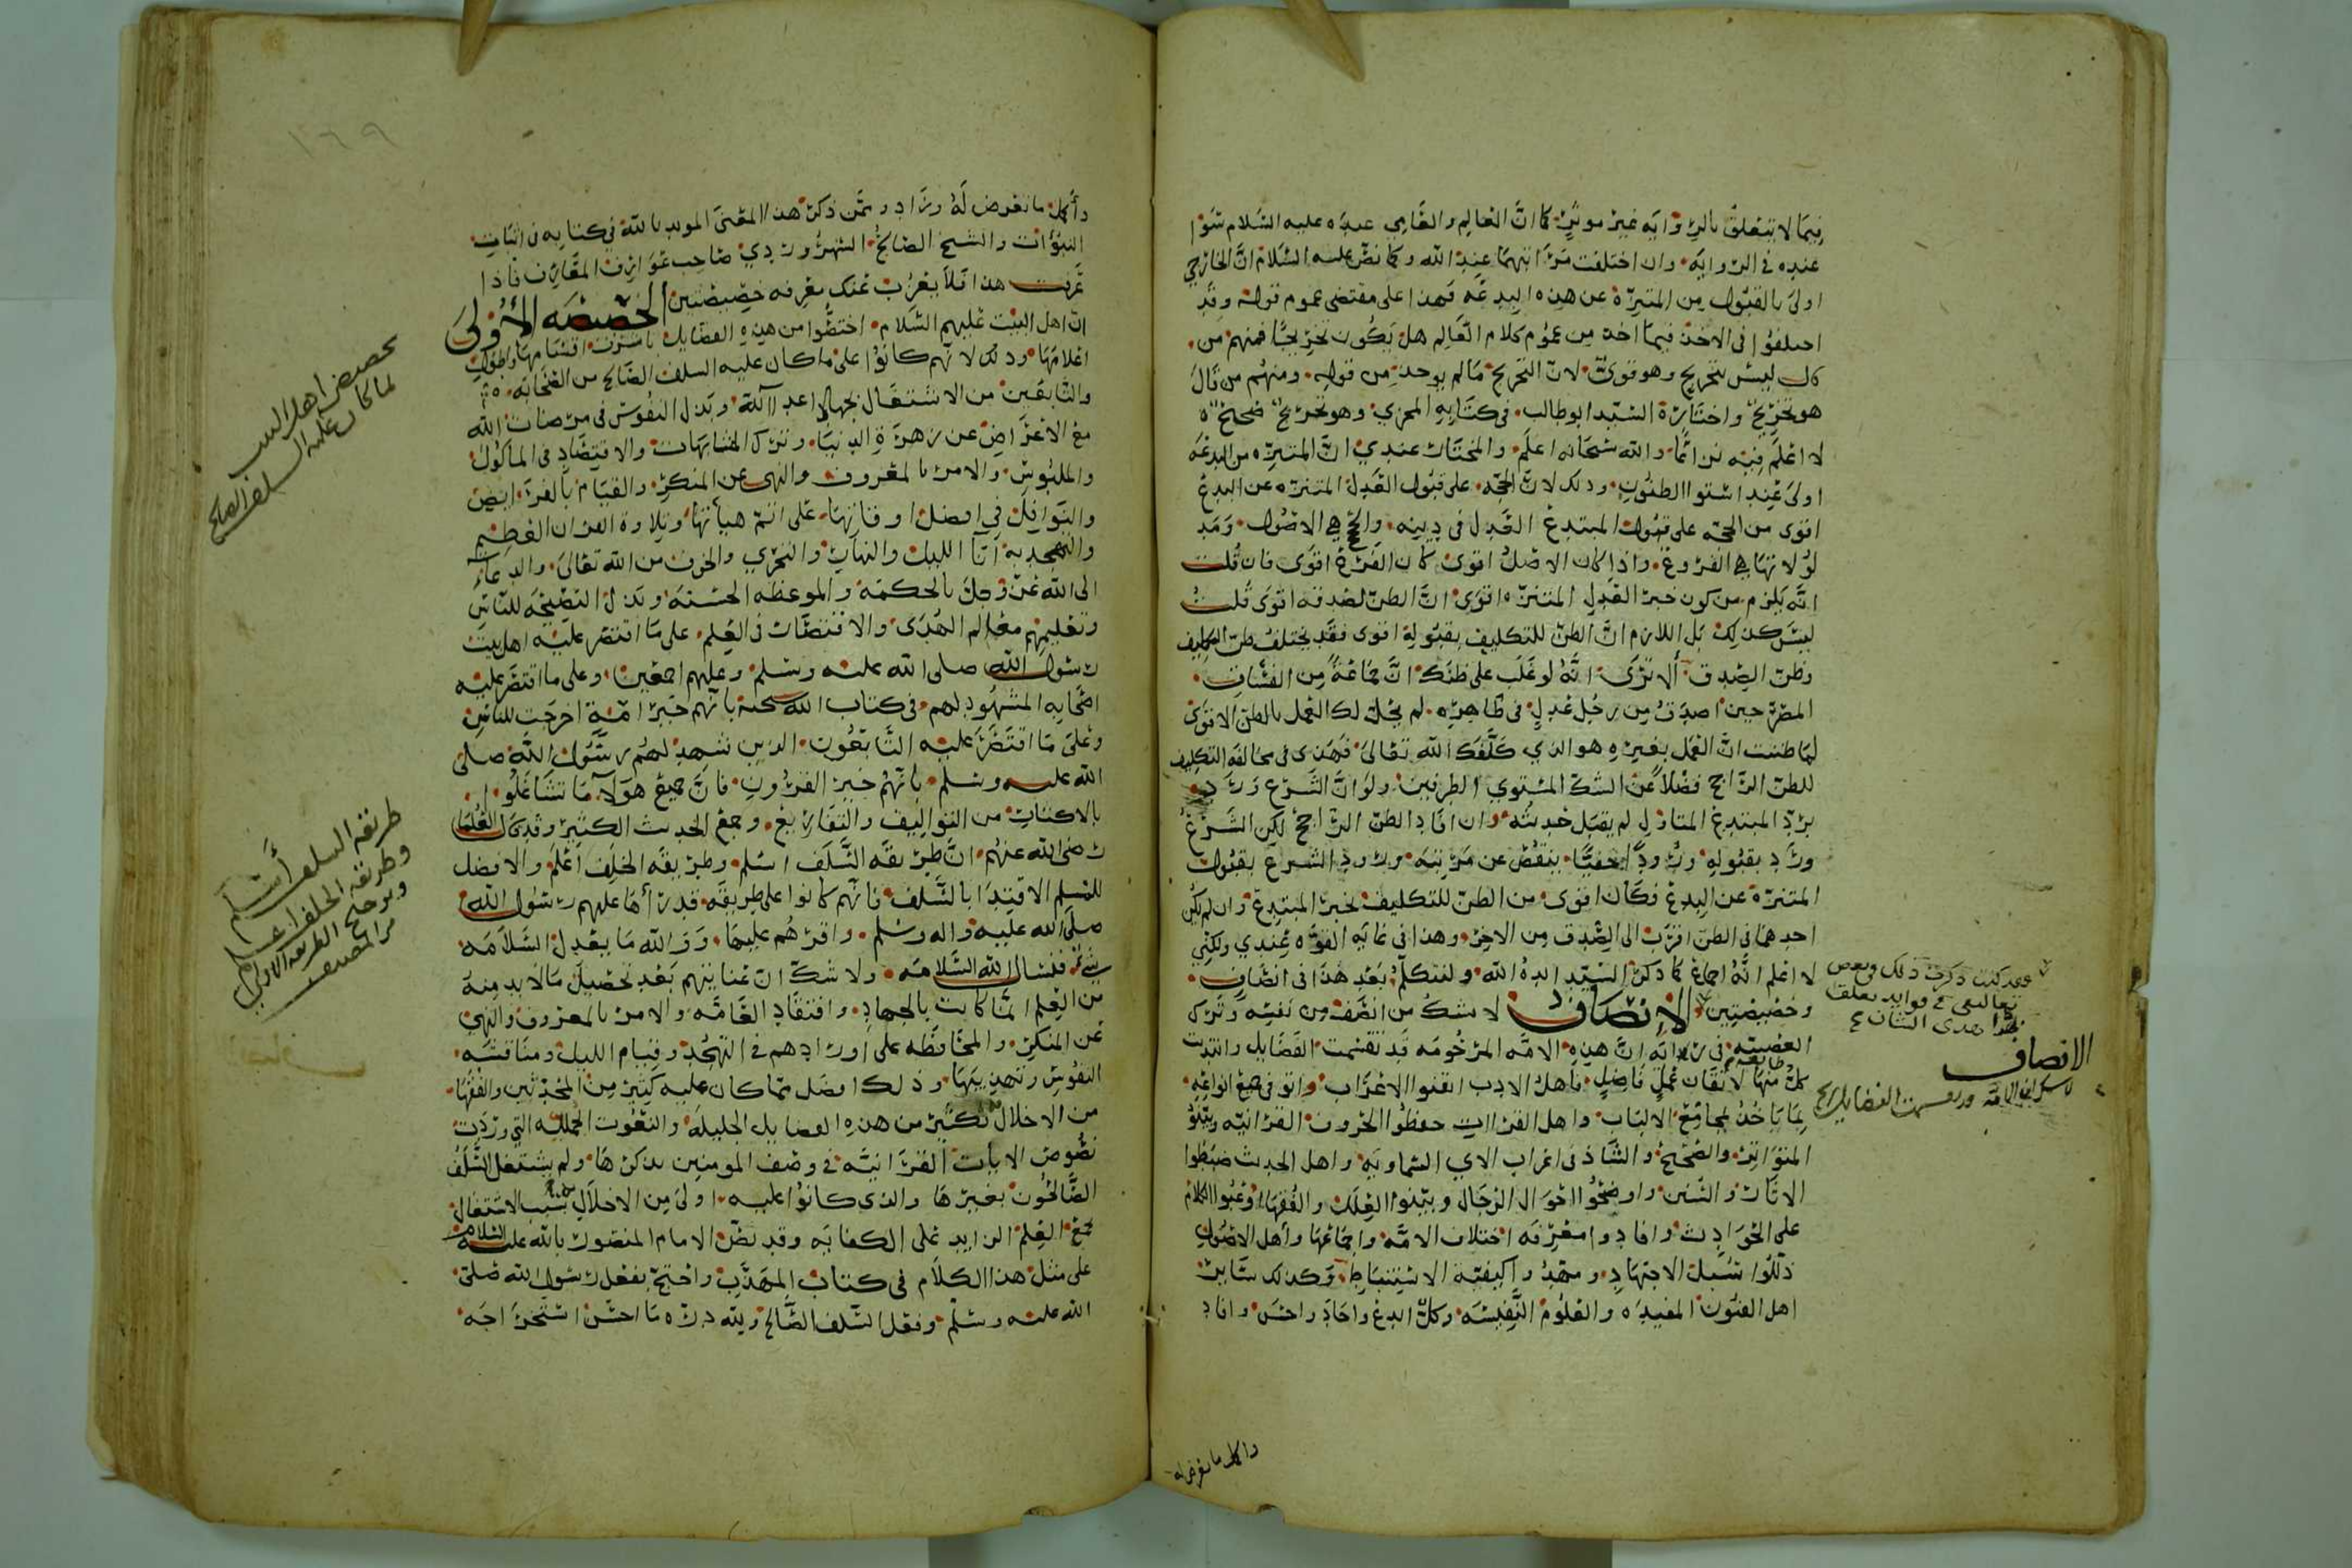 فيما لا يتعلق بالرواية غير موثر كما ان العالم والعامي عبده عليه السلام سوا
عنده في الرواية وان اختلفت مراتبهما عند الله وكما نص عليه السلام ان الخارجي
اولى بالقبول من المتبرئ عن هذه البدعه فهذا على مقتضى عموم قوله وقد
اختلفوا في الاخذ فيما اخذ من عموم كلام العالم هل يكون تخريجا فمنهم من
قال ليس بتخريج وهو قوي لان التخريج مالم يوجد من قوله ومنهم من قال
هو تخريج واختاره السيد ابو طالب في كتابه المجزي وهو تخريج صحيح
لا اعلم فيه نزاعا والله سبحانه اعلم والمختار عندي ان المتنزه من البدعه
اولى عند استوا الظنون وذلك لان الحجه على قبول العدل المتنزه عن البدع
اقوى من الحجه على قبول المبتدع العدل في دينه والحجج هي الاصول ومد
لولاتها هي الفروع واذا كان الاصل اقوى كان الفرع اقوى فان قلت
انه يلزم من كون خبر العدل المتنزه اقوى ان الظن لصدقه اقوى قلت
ليس كذلك بل اللازم ان الظن للتكليف بقبوله اقوى فقد يختلف ظن التكليف
وظن الصدق الا ترى انه لو غلب على ظنك ان جماعة من الفساق
المصرحين اصدق من رجل عدل في ظاهره لم يحل لك العمل بالظن الاقوى
لما ظننت ان العمل بغيره هو الذي كلفك الله تعالى فهذى في مخالفة التكليف
للظن الراجح فضلا عن الشك المستوي الطرفين ولو ان الشرع ورد
برد المبتدع المتاول لم يقبل حديثه وان افاد الظن الراجح لكن الشرع
ورد بقبوله ورودا خفيا ينقص عن مرتبة ورود الشرع بقبول
المتنزه عن البدع فكان اقوى من الظن للتكليف بخبر المبتدع وان لم يكن
احدهما في الظن اقرب الى الصدق من الاخر وهذا في غاية القوه عندي ولكني
لا اعلم انه اجماع كما ذكر السيد ايده الله ولنتكلم بعد هذا في انصاف
وخصيصتين الانصاف لا شك من انصف من نفسه وترك
العصبيه في رايه ان هذه الامه المرحومه قد تقسمت الفضايل وانتدبت
كل طايفه منها لاتقان عمل فاضل فاهل الادب اتقنوا الاعراب واتو في جميع انواعه
بما ياخذ بمجامع الالباب واهل القراات حفظوا الحروف القرانيه وبينوا
المتواتر والصحيح والشاذ في اعراب الاي السماويه واهل الحديث ضبطوا
الاثار والسنن واوضحوا احوال الرجال وبينوا العلل والفقها وعبوا الكلام
على الحوادث وافادوا معرفه اختلاف الامه واجماعها واهل الاصول
ذللوا سبل الاجتهاد ومهدوا كيفيه الاستنباط وكذلك ساير
اهل الفنون المفيده والعلوم النفيسه وكل ابدع واجاد واحسن وافاد
وقد كنت ذكرت ذلك في بعض
الانصاف
واكمل ما تعرض له
١٦٩
واكمل ما تعرض له وزاد وممن ذكر هذا المعنى المويد بالله في كتابه في اثبات
النبوات والشيخ الصالح السهروردي صاحب عوارف المعارف فاذا
عرفت هذا فلا يعزب عنك معرفه خصيصتين الخصيصه الاولى
ان اهل البيت عليهم السلام اختصوا من هذه الفضايل باشرف اقسامها واطول
اعلامها وذلك لانهم كانوا على ما كان عليه السلف الصالح من الصحابه
والتابعين من الاشتغال بجهاد اعدا الله وبذل النفوس في مرضات الله
مع الاعراض عن زهرة الدنيا وترك المشابهات والاقتصاد في الماكول
والملبوس والامر بالمعروف والنهي عن المنكر والقيام بالفرايض
والنوافل في افضل اوقاتها على اتم هيأتها وتلاوة القران العظيم
والتهجد به انآ الليل والنهار والتحري والخوف من الله تعالى والدعا
الى الله عز وجل بالحكمة والموعظه الحسنه وبذل النصيحه للناس
وتعليمهم معالم الهدى والاقتصار في العلم على ما اقتصر عليه اهل بيت
رسول الله صلى الله عليه وسلم وعليهم اجمعين وعلى ما اقتصر عليه
اصحابه المشهود لهم في كتاب الله سبحنه بانهم خير امة اخرجت للناس
وعلى ما اقتصر عليه التابعون الذين شهد لهم رسول الله صلى
الله عليه وسلم بانهم خير القرون فان جميع هولا ما تشاغلوا
بالاكثار من التواليف والتفاريع وجمع الحديث الكثير وقد قال العلما
رضي الله عنهم ان طريقه السلف اسلم وطريقه الخلف اعلم والافضل
للمسلم الاقتدا بالسلف فانهم كانوا على طريقه قد رأها عليهم رسول الله
صلى الله عليه واله وسلم واقرهم عليها ووالله ما يعدل السلامه
شي فنسال الله السلامه ولا شك ان عنايتهم بعد تحصيل ما لا بد منه
من العلم انما كانت بالجهاد وافتقاد العامه والامر بالمعروف والنهي
عن المنكر والمحافظه على اورادهم في التهجد وقيام الليل ومناقشه
النفوس وتهذيبها وذلك افضل مما كان عليه كثير من المحدثين والفقها
من الاخلال بكثير من هذه الفضايل الجليله والنعوت الجميله التي وردت
نصوص الايات القرانيه في وصف المومنين بذكرها ولم يشتغل السلف
الصالحون بغيرها والذي كانوا عليه اولى من الاخلال بسبب الاشتغال
بجمع العلم الزايد على الكفايه وقد نص الامام المنصور بالله عليه السلام
على مثل هذا الكلام في كتاب المهذب واحتج بفعل رسول الله صلى
الله عليه وسلم وفعل السلف الصالح ولله دره ما احسن استخراجه
تخصيص اهل البيت
لما كان عليه السلف الصالح
طريقه السلف أسلم
وطريقه الخلف اعلم
وترجيح الطريقه الاولى
من المصنف